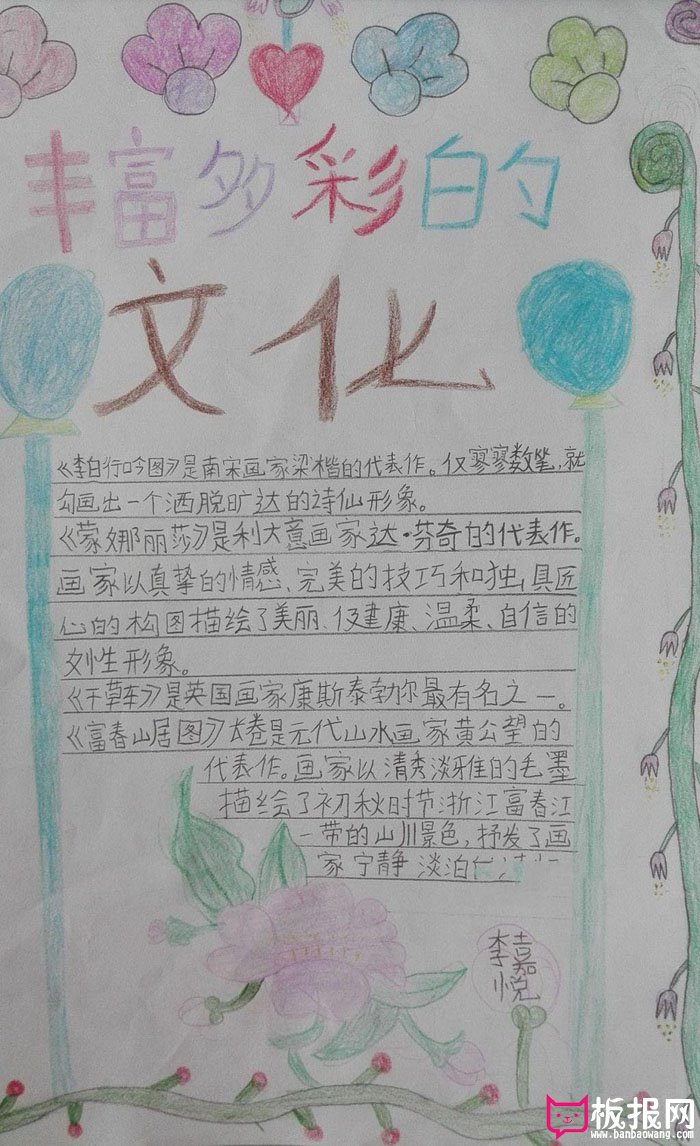 丰富多彩的
文化
《李白行吟图》是南宋画家梁楷的代表作。仅寥寥数笔,就
勾画出一个洒脱旷达的诗仙形象。
《蒙娜丽莎》是利大意画家达·芬奇的代表作。
画家以真挚的情感、完美的技巧和独具匠
心的构图描绘了美丽、健康、温柔、自信的
女性形象。
《干草车》是英国画家康斯泰勃尔最有名之一。
《富春山居图》长卷是元代山水画家黄公望的
代表作。画家以清秀淡雅的毛墨
描绘了初秋时节浙江富春江
一带的山川景色,抒发了画
家宁静淡泊
李嘉悦
板报网
www.banbaowang.com